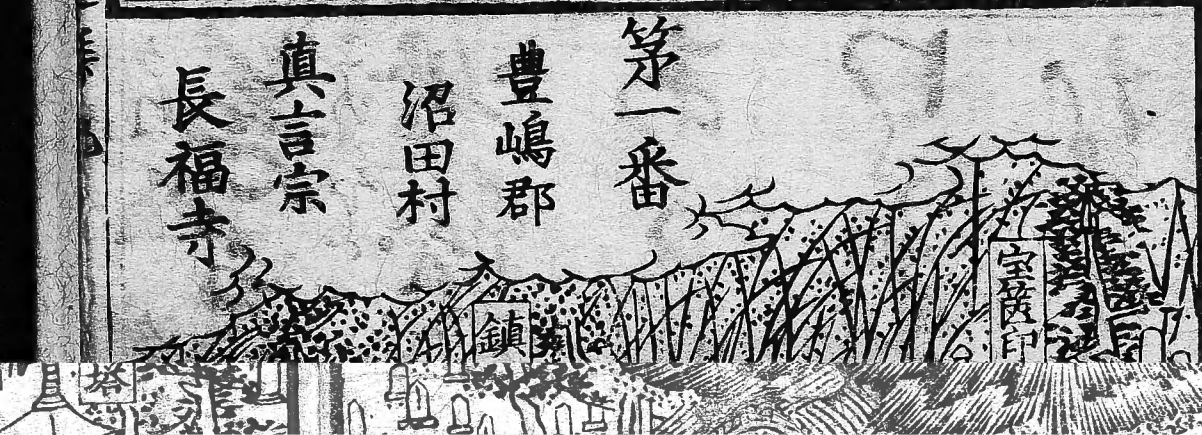 第一番
豊嶋郡
沼田村
真言宗
長福寺
宝篋印
鎮
塔